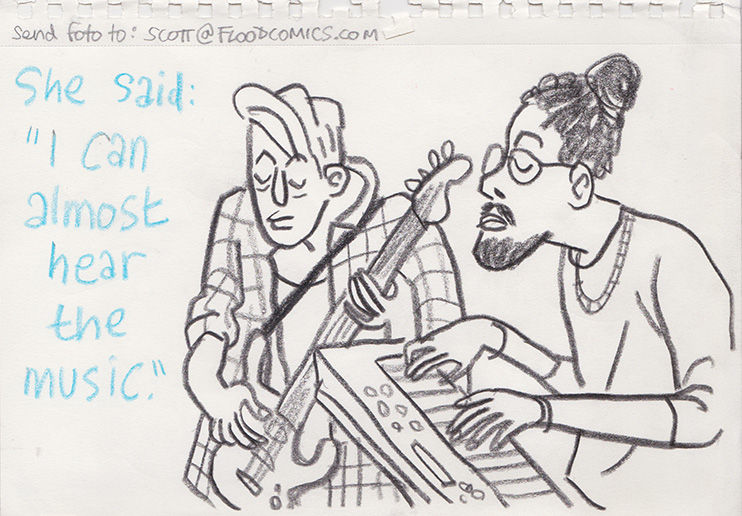 Send foto to: SCOTT@FLOODCOMICS.COM
She said:
"I can
almost
hear
the
music."